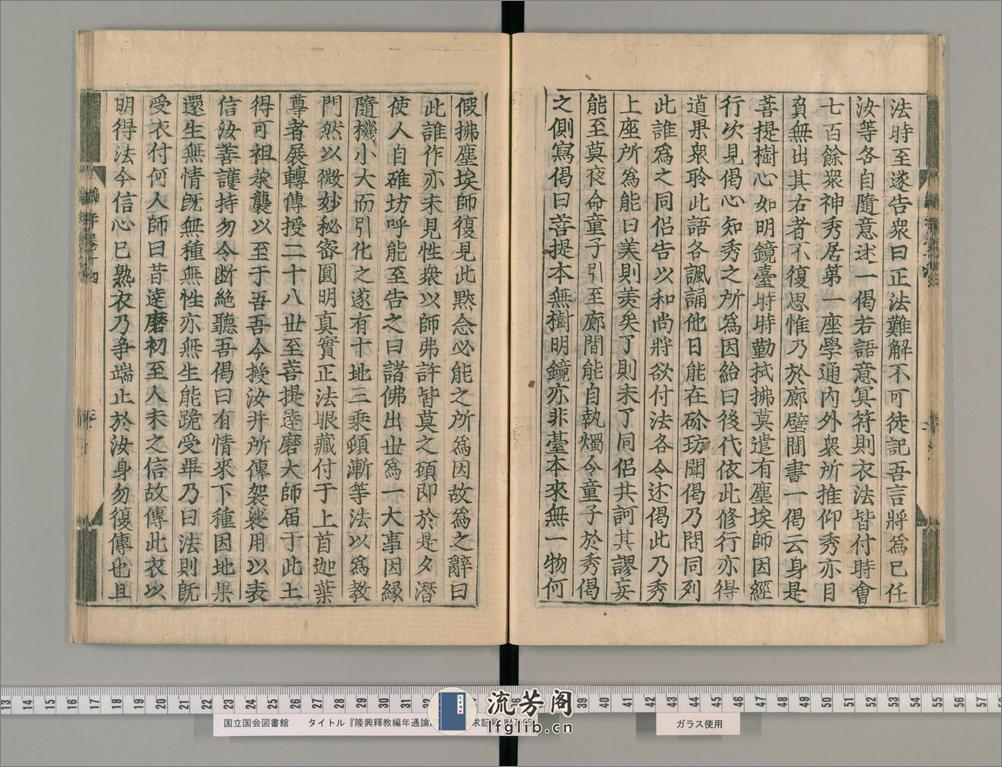 法時至遂告衆曰正法難解不可徒記吾言將爲已任
汝等各自隨意述一偈若語意冥符則衣法皆付時會
七百餘衆神秀居第一座學通內外衆所推仰秀亦自
負無出其右者不復思惟乃於廊壁間書一偈云身是
菩提樹心如明鏡臺時時勤拂拭莫遣有塵埃師因經
行次見偈心知秀之所爲因紿曰後代依此修行亦得
道果衆聆此語各諷誦他日能在碓坊聞偈乃問同列
此誰爲之同侶告以和尚將欲付法各令述偈此乃秀
上座所爲能曰美則美矣了則未了同侶共訶其謬妄
能至莫夜命童子引至廊間能自執燭令童子於秀偈
之側寫偈曰菩提本無樹明鏡亦非臺本來無一物何
假拂塵埃師復見此黙念必能之所爲因故爲之辭曰
此誰作亦未見性衆以師弗許皆莫之顧即於是夕潛
使人自碓坊呼能至告之曰諸佛出世爲一大事因緣
隨機小大而引化之遂有十地三乘頓漸等法以爲教
門然以微妙秘密圓明真實正法眼藏付于上首迦葉
尊者展轉傳授二十八世至菩提達磨大師届于此土
得可祖承襲以至于吾吾今授汝并所傳袈裟用以表
信汝善護持勿令断絶聽吾偈曰有情來下種因地果
還生無情旣無種無性亦無生能跪受畢乃曰法則旣
受衣付何人師曰昔達磨初至人未之信故傳此衣以
明得法今信心已熟衣乃争端止於汝身勿復傳也且
国立国会図書館 タイトル『隆興釋教編年通論
ガラス使用
流芳阁
lfglib.cn